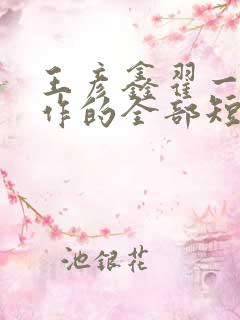 王彦鑫翟一
作的全部短
池银花